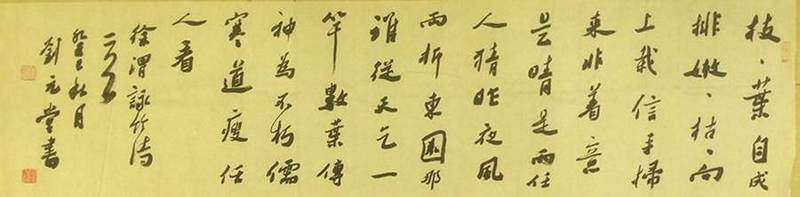 枝、葉自成
排嫩、枯、向
上栽信手掃
來非着意
是晴是雨任
人猜昨夜風
雨折東園那
誰從天乞一
竿數葉傳
神為不朽儒
寒道瘦任
人看
徐渭詠竹詩
二首
癸巳秋月
劉元堂書